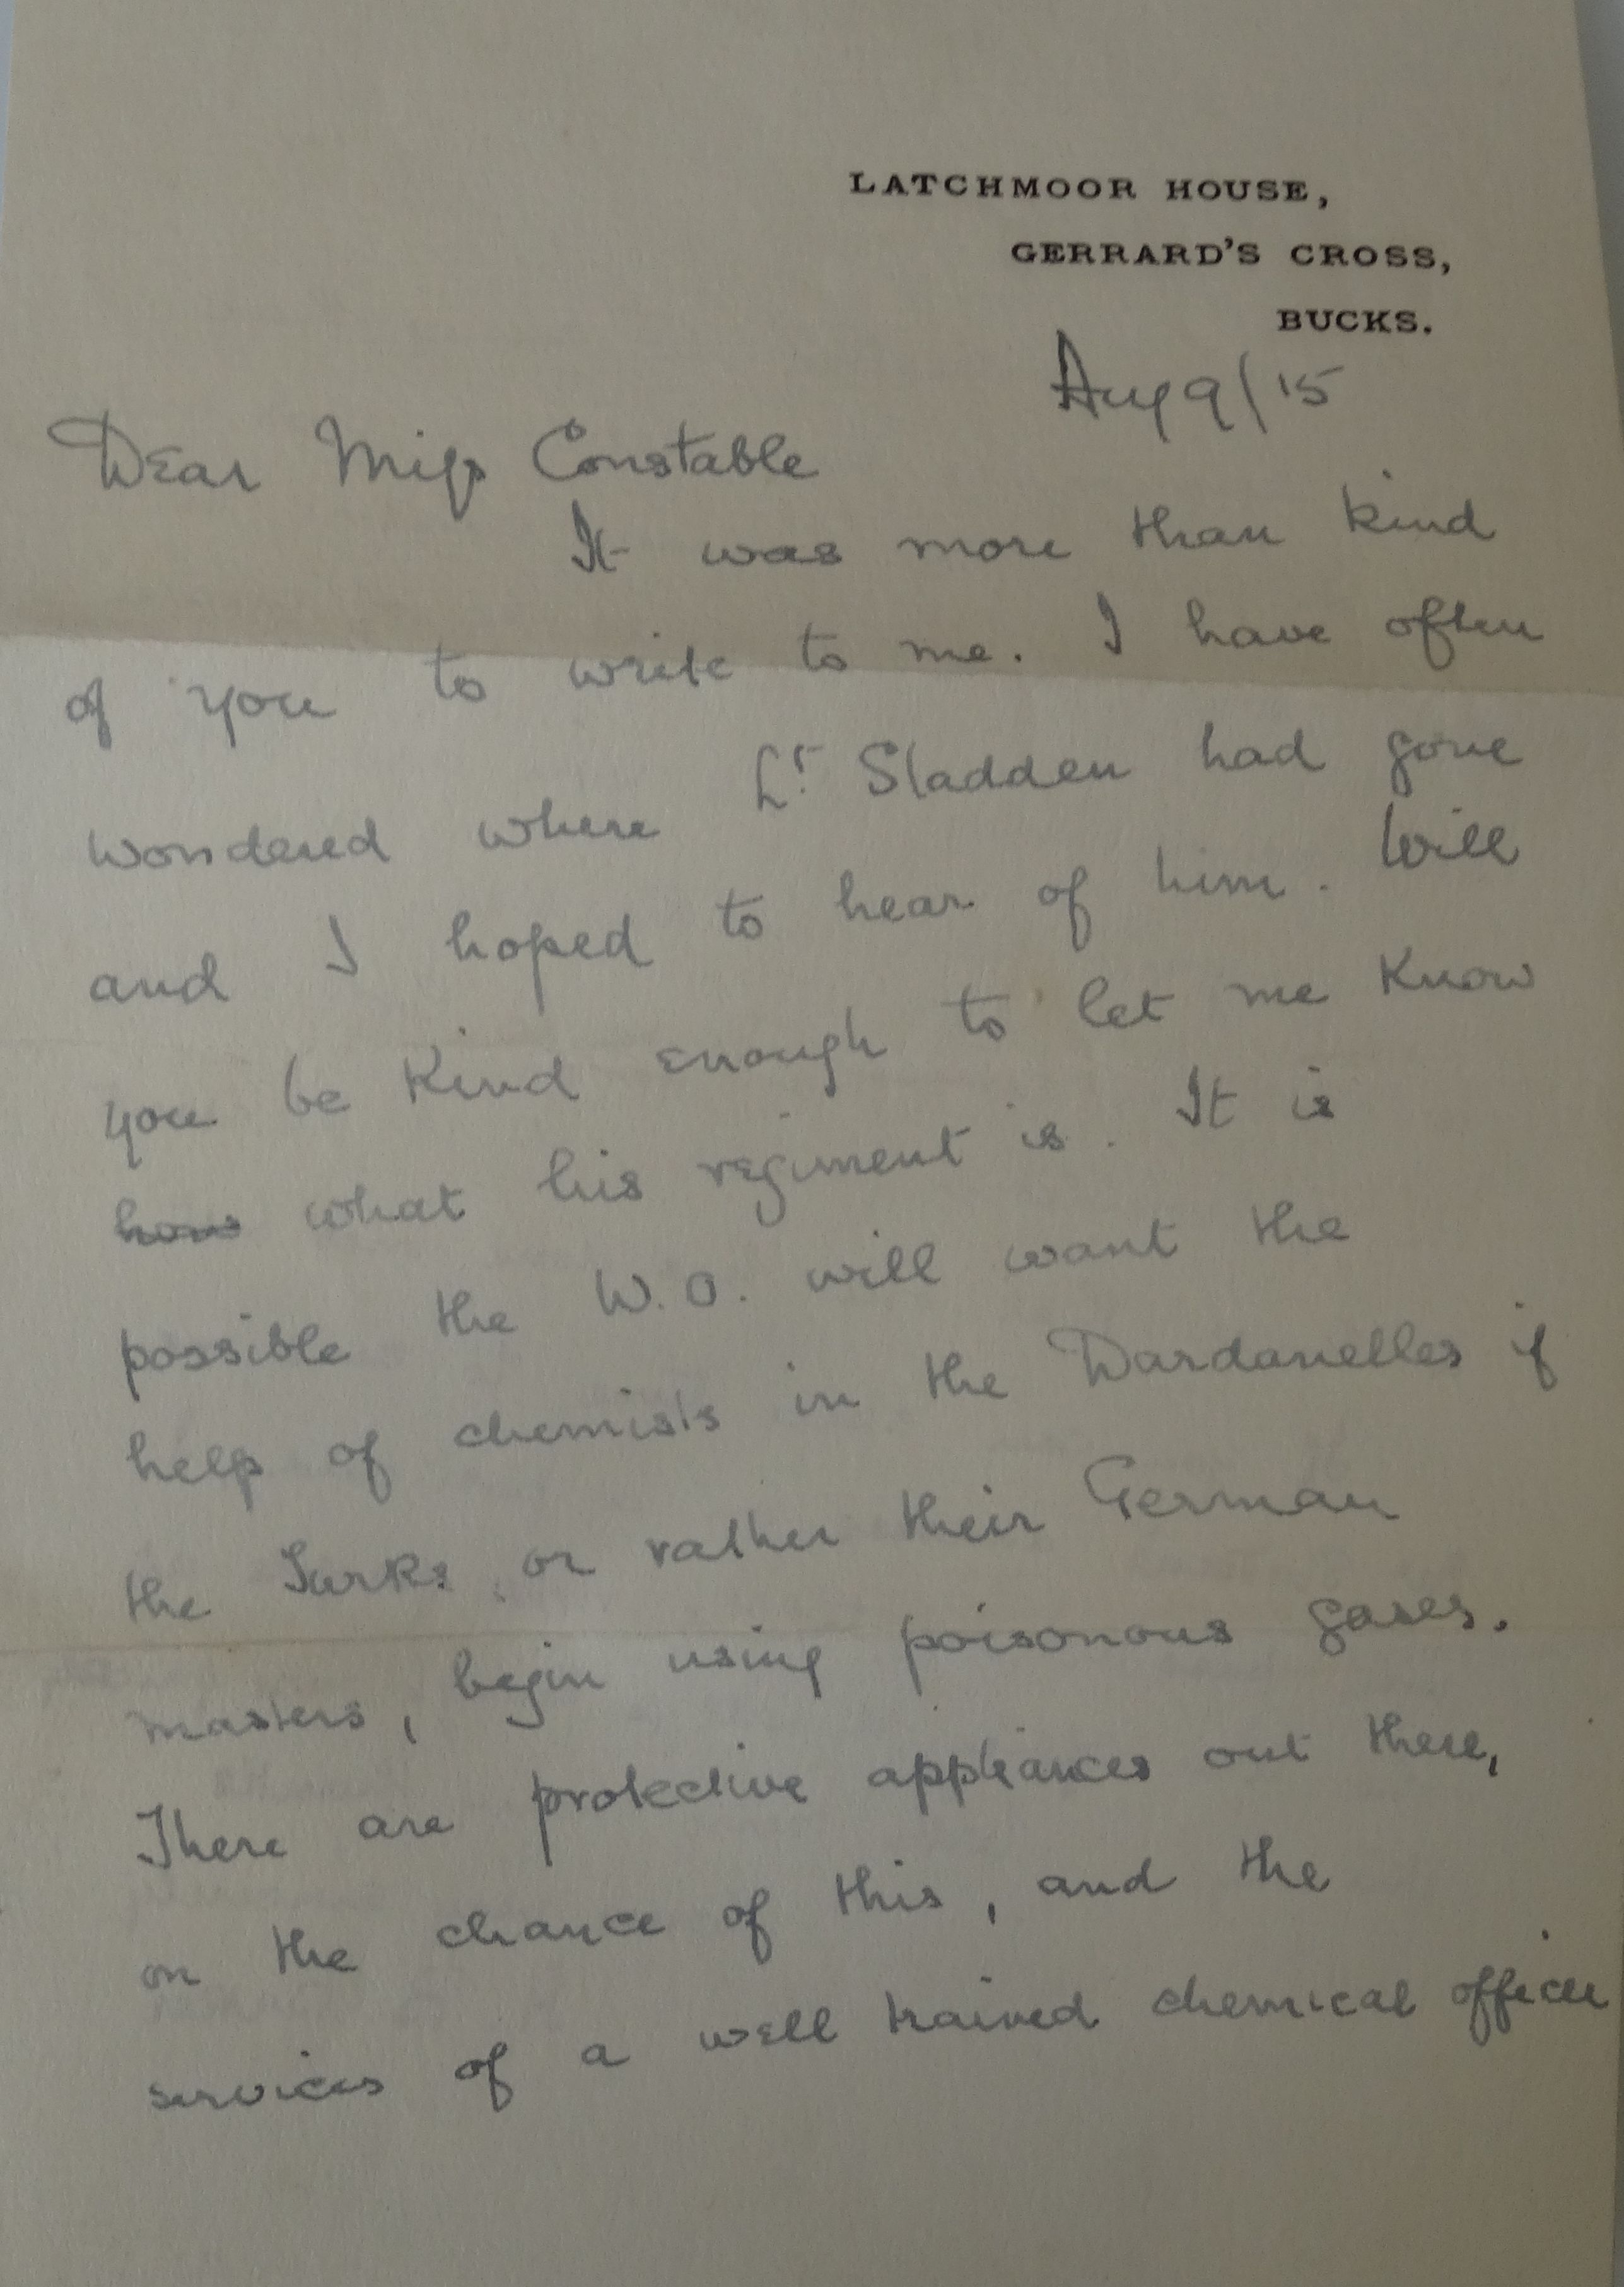 LATCHMOOR HOUSE,
GERRARD'S CROSS,
BUCKS.
Aug 9/15
Dear Miss Constable
It was more than kind
of you to write to me. I have often
wondered where Lt. Sladden had gone
and I hoped to hear of him. Will
you be kind enough to let me know
how what his regiment is. It is
possible the W.O. will want the
help of chemists in the Dardanelles if
the Turks, or rather their German
masters, begin using poisonous gases.
There are protective appliances out there,
on the chance of this, and the
services of a well trained chemical officer